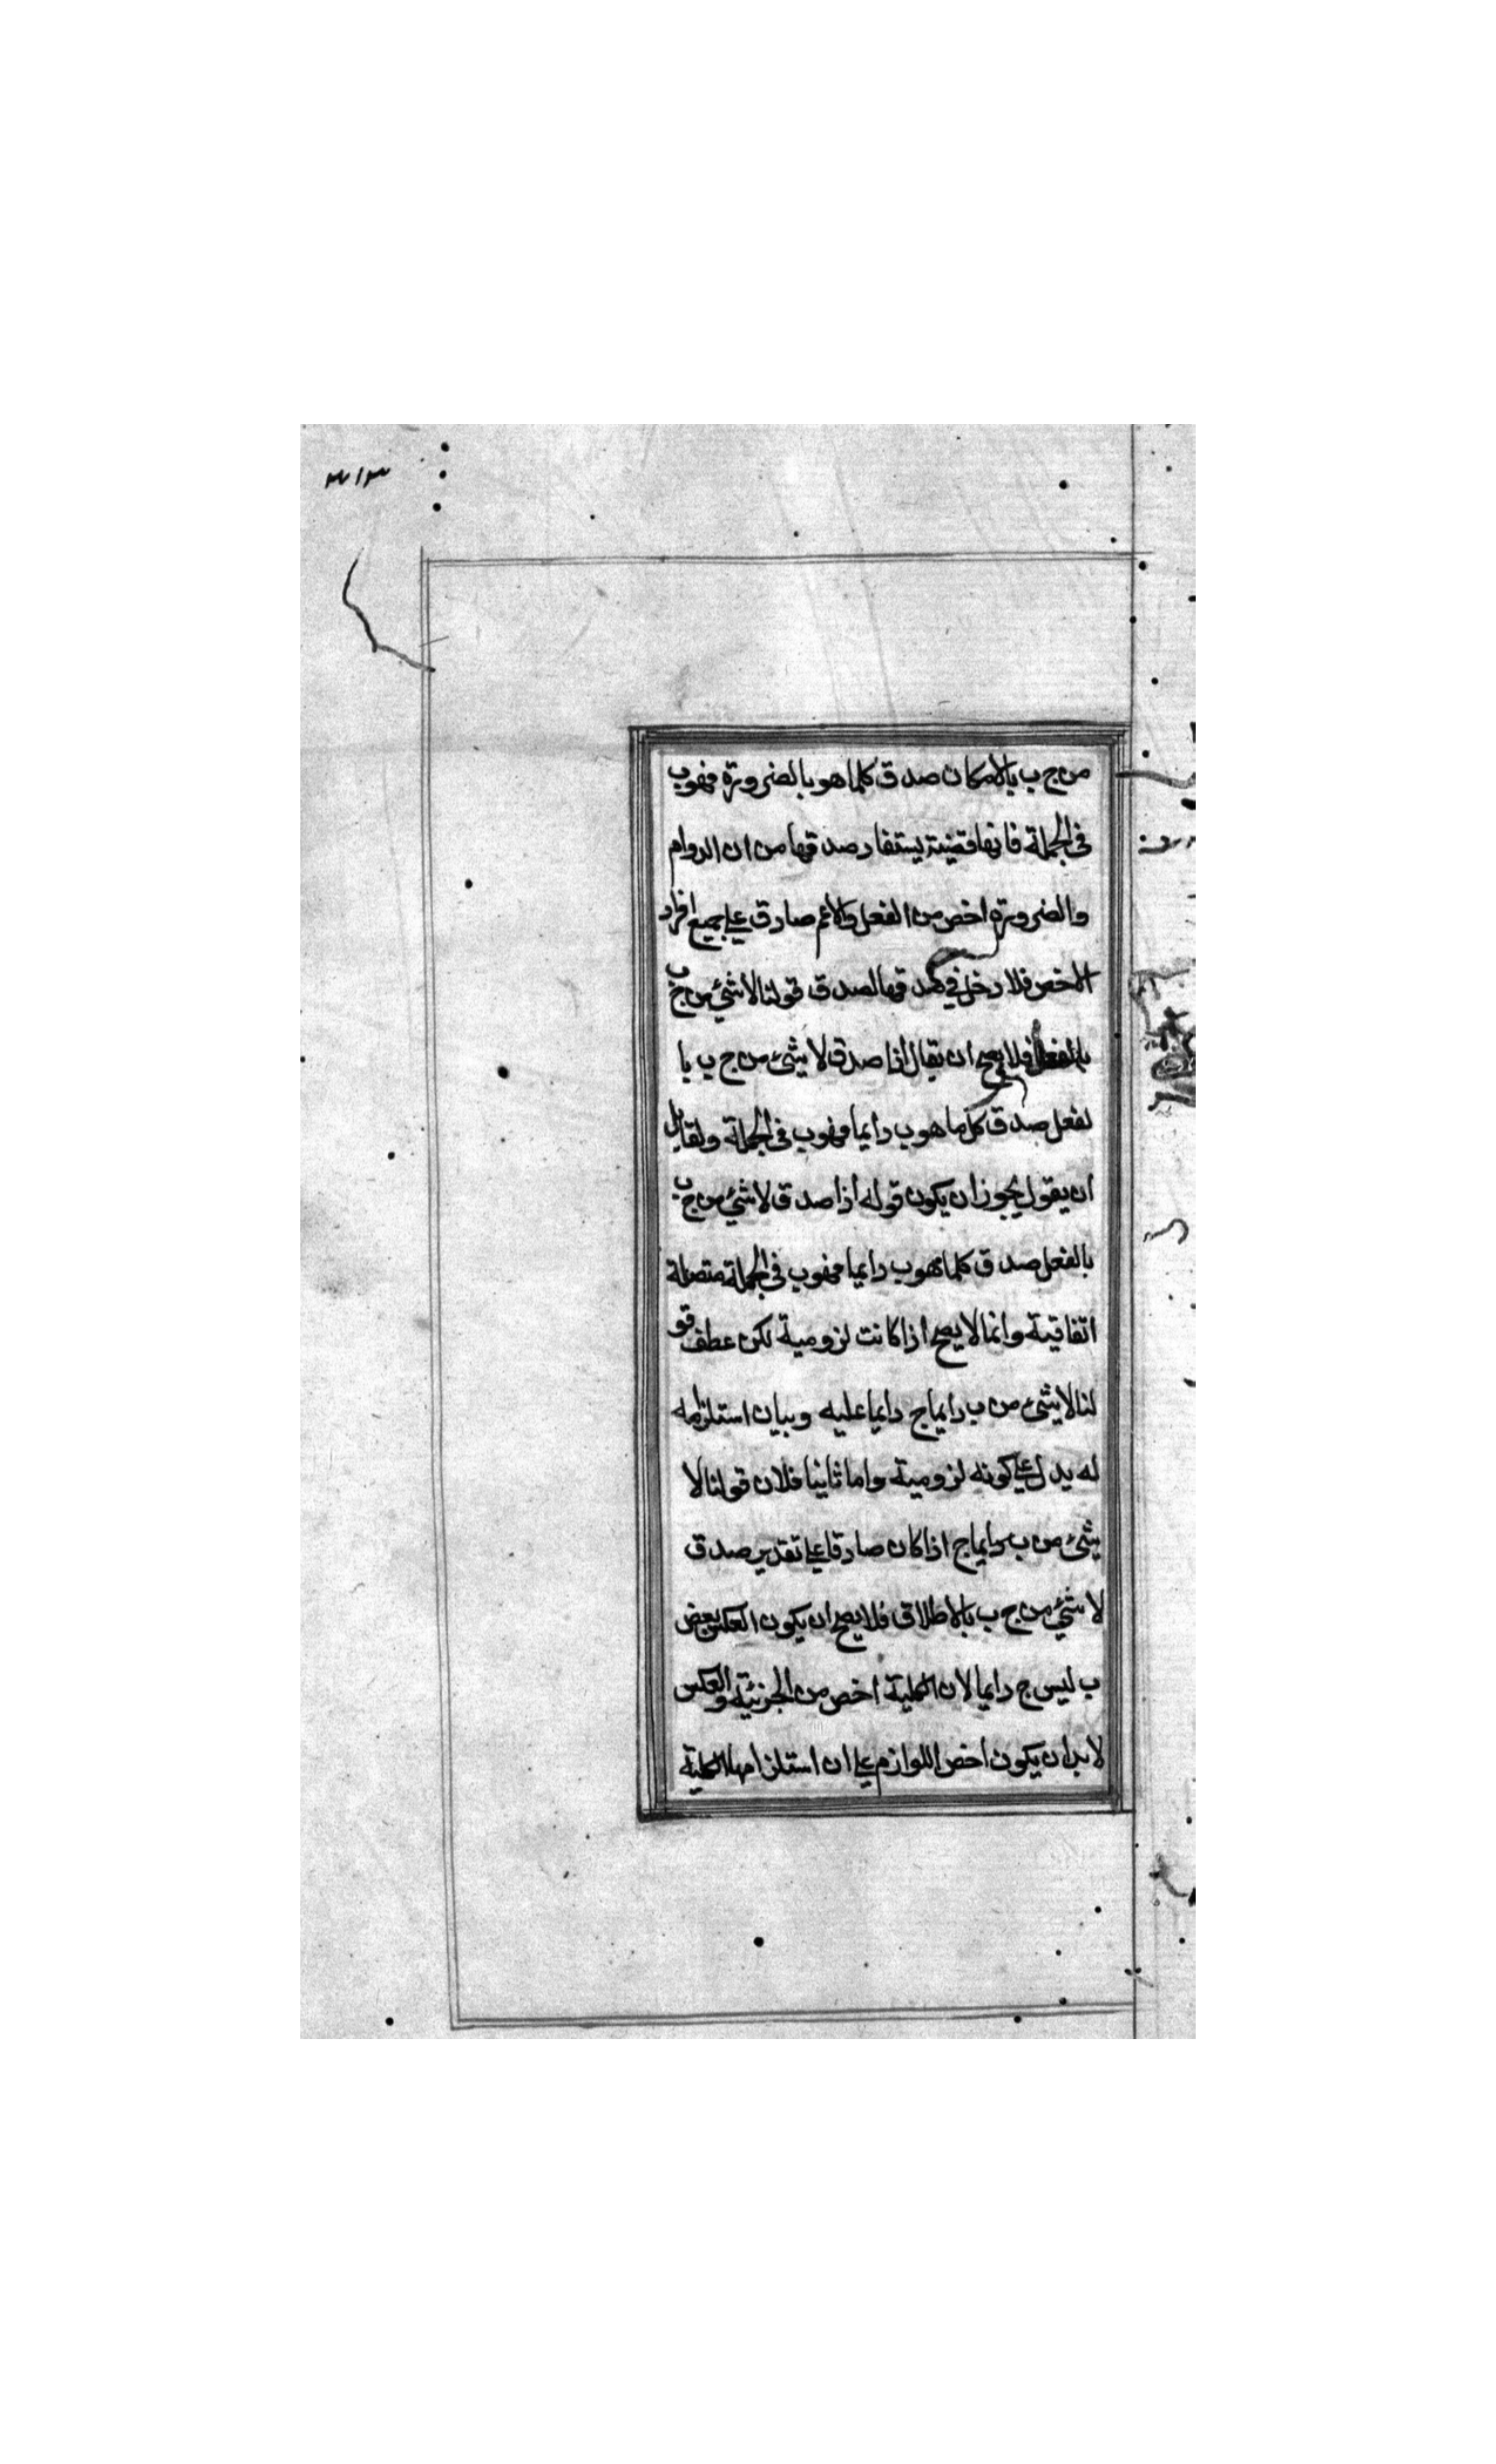 ٣١٣
من ج ب بالامكان صدق كلما هو بالضرورة فهو ب
فى الجملة فانها قضية يستفاد صدقها من ان الدوام
والضرورة اخص من الفعل والاعم صادق على جميع افراد
الاخص فلا دخل فى صدقها لصدق قولنا لا شئ من ج ب
بالفعل فلا يصح ان يقال اذا صدق لا شئ من ج ب با
لفعل صدق كل ما هو ب دايما فهو ب فى الجملة ولقايل
ان يقول يجوز ان يكون قوله اذا صدق لا شئ من ج ب
بالفعل صدق كلما هو ب دايما فهو ب فى الجملة متصلة
اتفاقية وانما لا يصح اذا كانت لزومية لكن عطف قو
لنا لا شئ من ب دايما ج دايما عليه وبيان استلزامه
له يدل على كونه لزومية واما ثانيا فلان قولنا لا
شئ من ب دايما ج اذا كان صادقا على تقدير صدق
لا شئ من ج ب بالاطلاق فلا يصح ان يكون العكس بعض
ب ليس ج دايما لان الكلية اخص من الجزئية والعكس
لا بد ان يكون اخص اللوازم على ان استلزامها الكلية